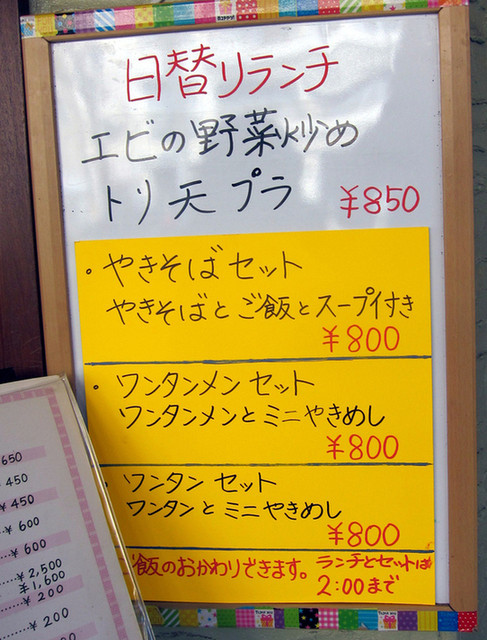 日替リランチ
エビの野菜炒め
トリ天プラ ¥850
・やきそばセット
やきそばとご飯とスープ付き
¥800
・ワンタンメンセット
ワンタンメンとミニやきめし
¥800
ワンタンセット
ワンタンとミニやきめし
¥800
ご飯のおかわりできます。ランチとセットは
2:00まで
650
450
¥450
¥600
¥600
¥2,500
¥1,600
¥200
¥200